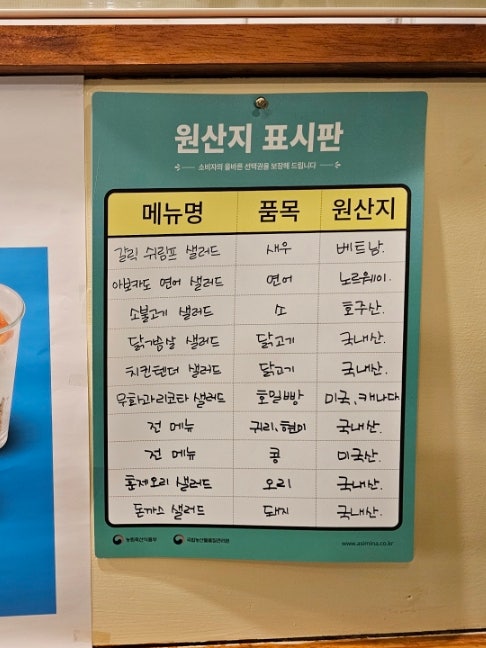 원산지 표시판
소비자의 올바른 선택권을 보장해 드립니다
메뉴명 품목 원산지
갈릭 쉬림프 샐러드 새우 베트남.
아보카도 연어 샐러드 연어 노르웨이.
소불고기 샐러드 소 호주산.
닭가슴살 샐러드 닭고기 국내산.
치킨텐더 샐러드 닭고기 국내산.
무화과리코타 샐러드 호밀빵 미국, 캐나다
전 메뉴 귀리, 현미 국내산.
전 메뉴 콩 미국산.
훈제오리 샐러드 오리 국내산.
돈까스 샐러드 돼지 국내산.
농림축산식품부 국립농산물품질관리원 www.asimina.co.kr